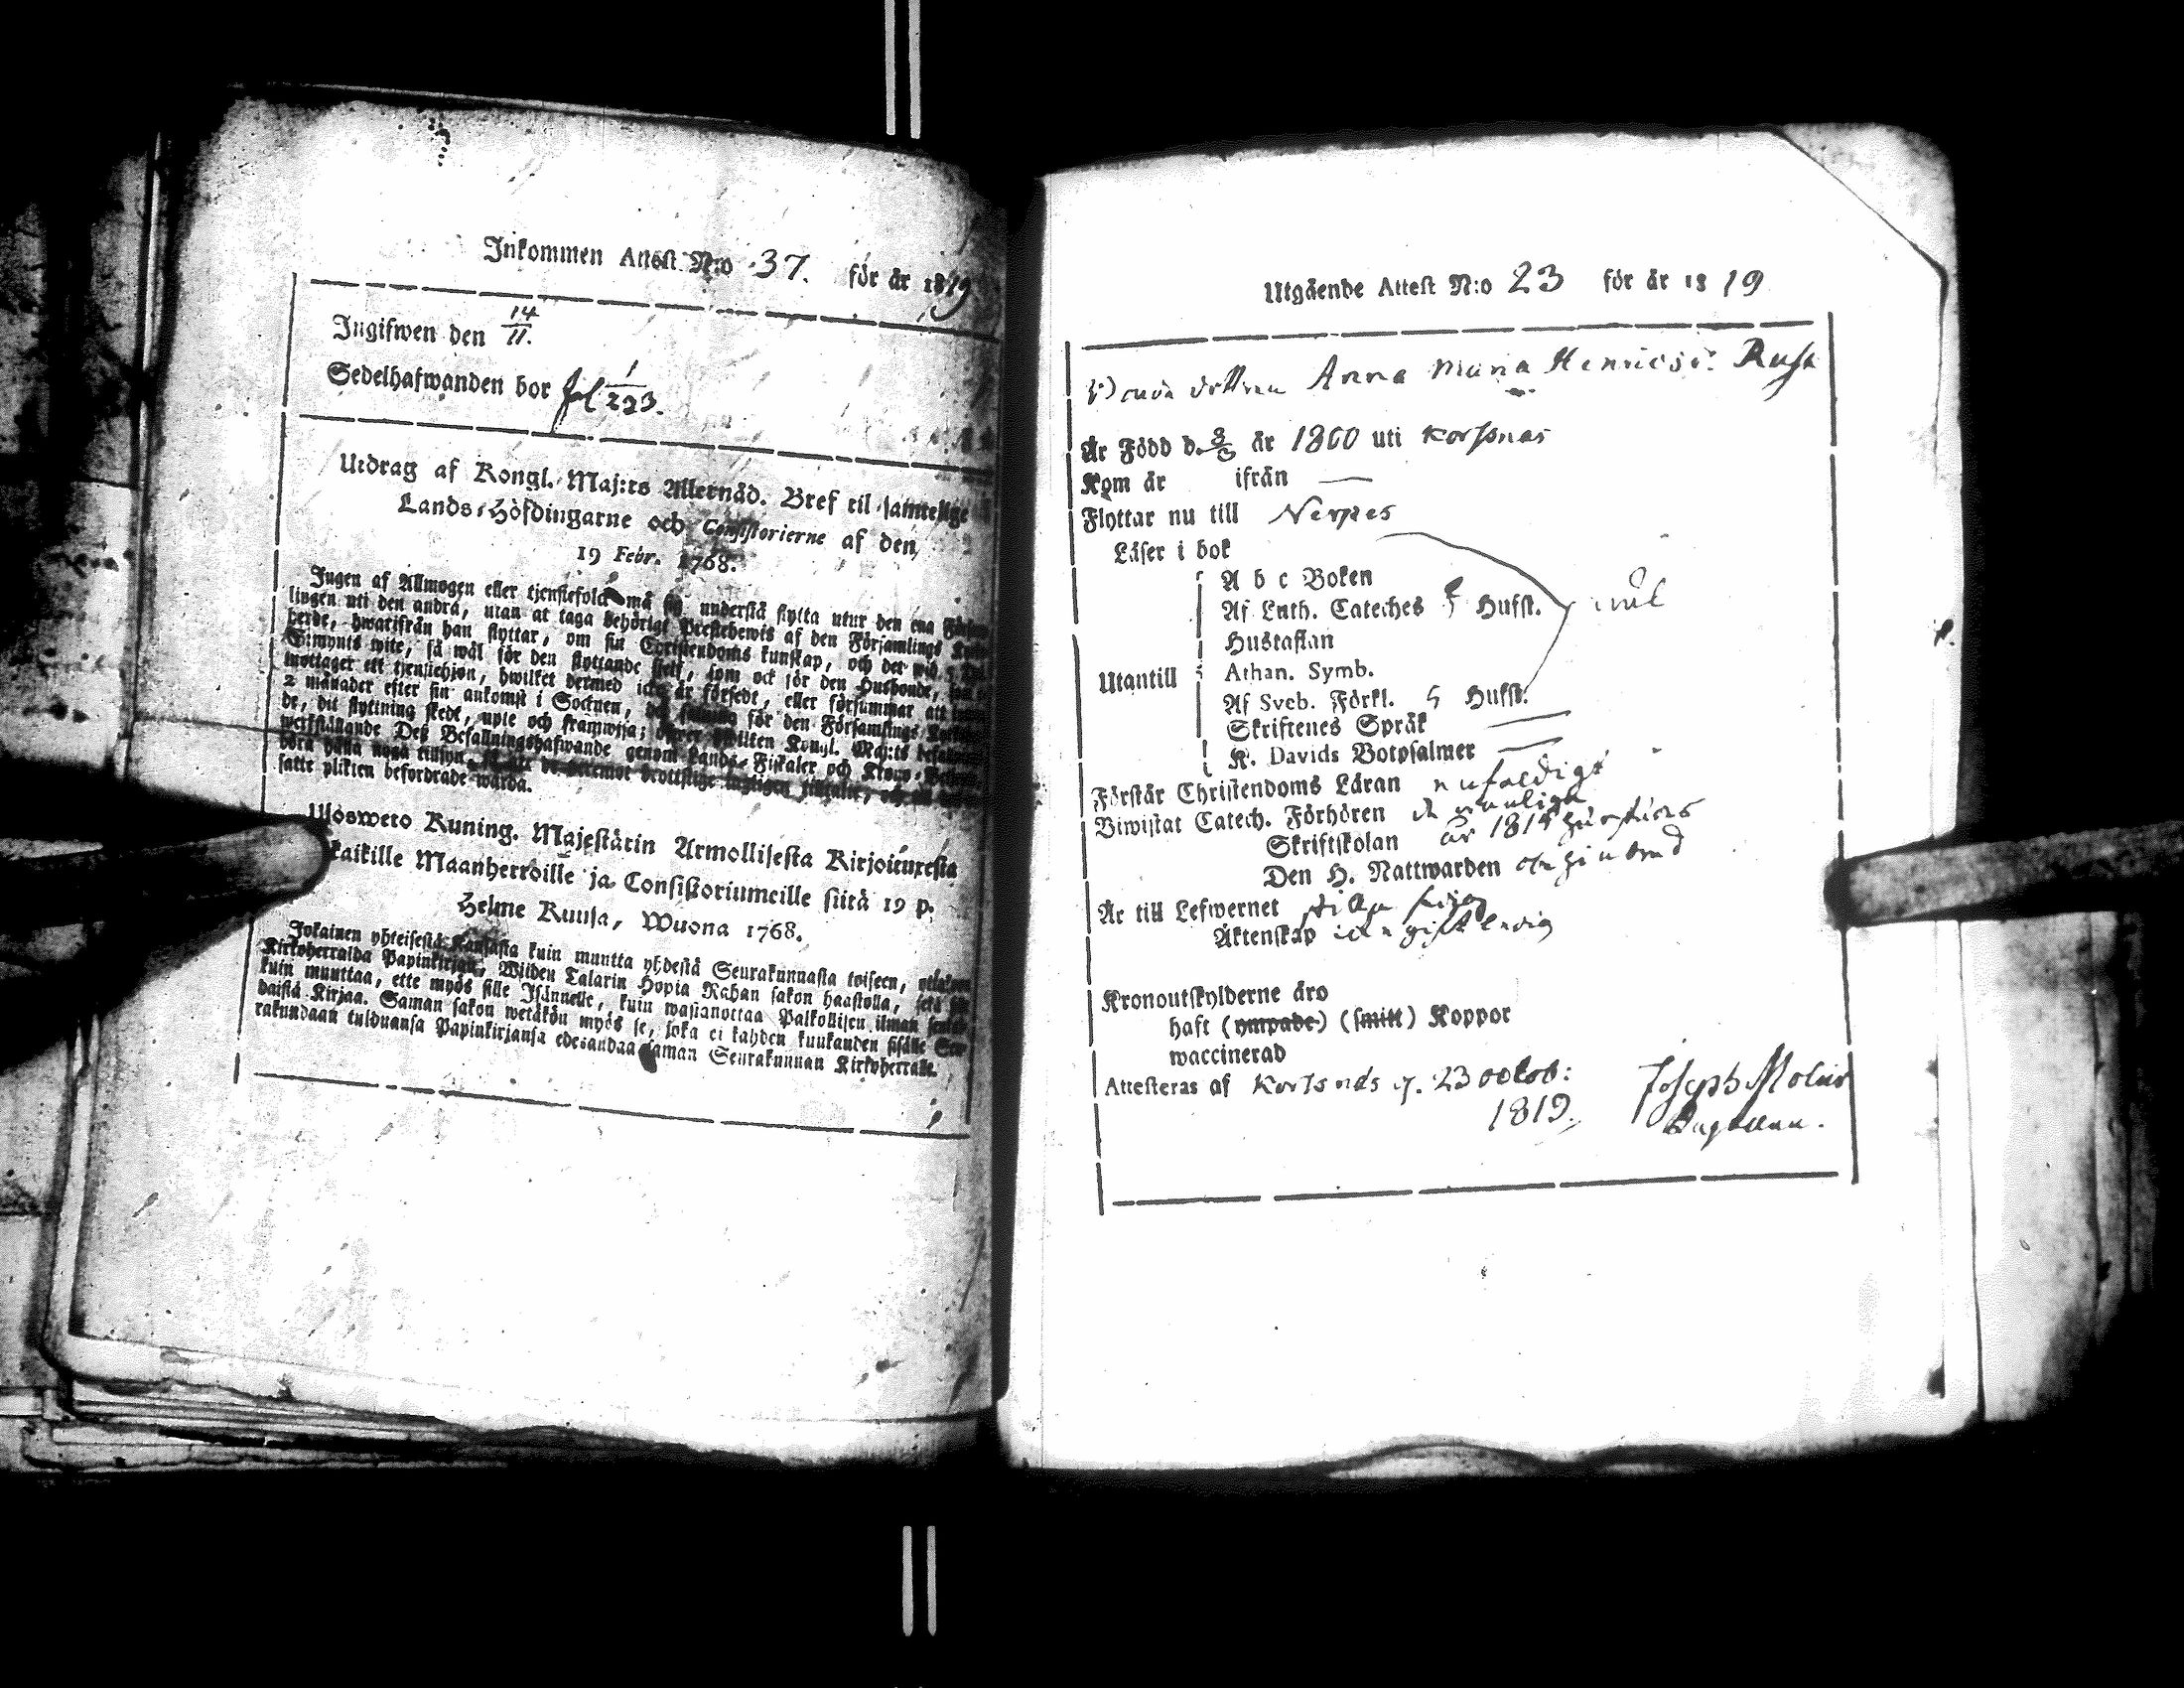 Inkommen Attest N:o 37. för år 1819
Ingifwen den 14/11.
Sedelhafwanden bor fol 1/223.
Utdrag af Kongl. Maj:ts Allernåd. Bref til samtelige
Lands-Höfdingarne och Consistorierne af den
19 Febr. 1768.
Ingen af Allmogen eller tjenstefolck må sig understå flytta utur den ena Försam-
lingen uti den andra, utan at taga behörigt Prestebewis af den Församlings Kyrko-
herde, hwarifrån han flyttar, om sin Christendoms kunskap, och det wid 5 Dal.
S:mynts wite, så wäl för den flyttande sielf, som ock för den Husbonde, som
mottager ett tjenstehjon, hwilket dermed icke är försedt, eller försummar att inom
2 månader efter sin ankomst i Socknen, för den Församlings
de, dit flyttning skedt, upte och framwisa; hwilken Kongl. Maj:ts befallning
werkställande Deß Befallningshafwande genom Lands-Fiskaler och Krono-Betjente
böra hålla noga tillsyn
satte plikten befordrade warda.
Ulosweto Kuning. Majestätin Armollisesta Kirjoituxesta
kaikille Maanherroille ja Consistoriumeille siitä 19 p.
Helme Kuusa, Wuona 1768.
Jokainen yhteisestä Kansasta kuin muutta yhdestä Seurakunnasta toiseen, ottakon
Kirkoherralda Papinkirjan, Wiiden Talarin Hopia Rahan sakon haastolla, sekä se
kuin muuttaa, ette myös sille Isännelle, kuin wastanottaa Palkollisen ilman senkal-
daistä Kirjaa. Saman sakon wetäkön myös se, joka ei kahden kuukauden sisälle Seu-
rakundaan tulduansa Papinkirjansa edesandaa saman Seurakunnan Kirkoherralle.
Utgående Attest N:o 23 för år 1819
Bonde dottren Anna Maria Henricsd:
Är Född d. år 1800 uti Korssnäs
Kom år ifrån —
Flyttar nu till Nerpes
Läser i bok
A b c Boken
Af Luth. Cateches 5 Hufst.
Hustaflan
Utantill Athan. Symb.
Af Sveb. Förkl. 5 Hufst.
Skriftenes Språk —
K. Davids Botpsalmer —
Förstår Christendoms Läran enfaldigt
Biwistat Catech. Förhören de vanliga
Skriftskolan år 1815
Den H. Nattwarden
Är till Lefwernet stilla
Äktenskap ledig
Kronoutskylderne äro
haft (ympade) (smitt) Koppor
waccinerad
Attesteras af Korssnäs d. 23 octob:
1819. Joseph Molin